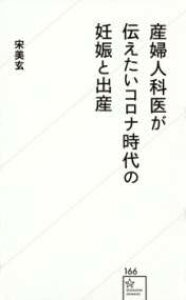 産婦人科医が
伝えたいコロナ時代の
妊娠と出産
宋美玄
166